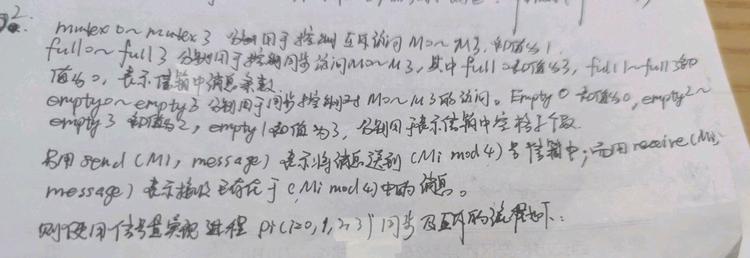 2. mutex0~mutex3 分别用于控制互斥访问M0~M3,初值为1.
full0~full3 分别用于控制同步访问M0~M3,其中full0初值为3, full1~full3初
值为0,表示信箱中消息条数.
empty0~empty3 分别用于同步控制对M0~M3的访问。Empty0 初值为0, empty2~
empty3 初值为2, empty1初值为3, 分别用于表示信箱中空格子个数.
另用send(Mi, message)表示将消息送到(Mi mod4)号信箱中;而用receive(Mi,
message)表示接收已存在于(Mi mod4)中的消息。
则使用信号量实现进程Pi(i=0,1,2,3)同步及互斥的流程如下: